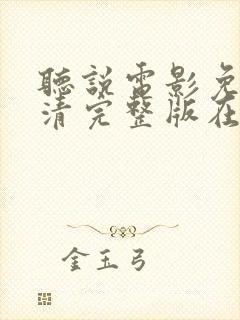 聽說電影免
清完整版在
金玉弓